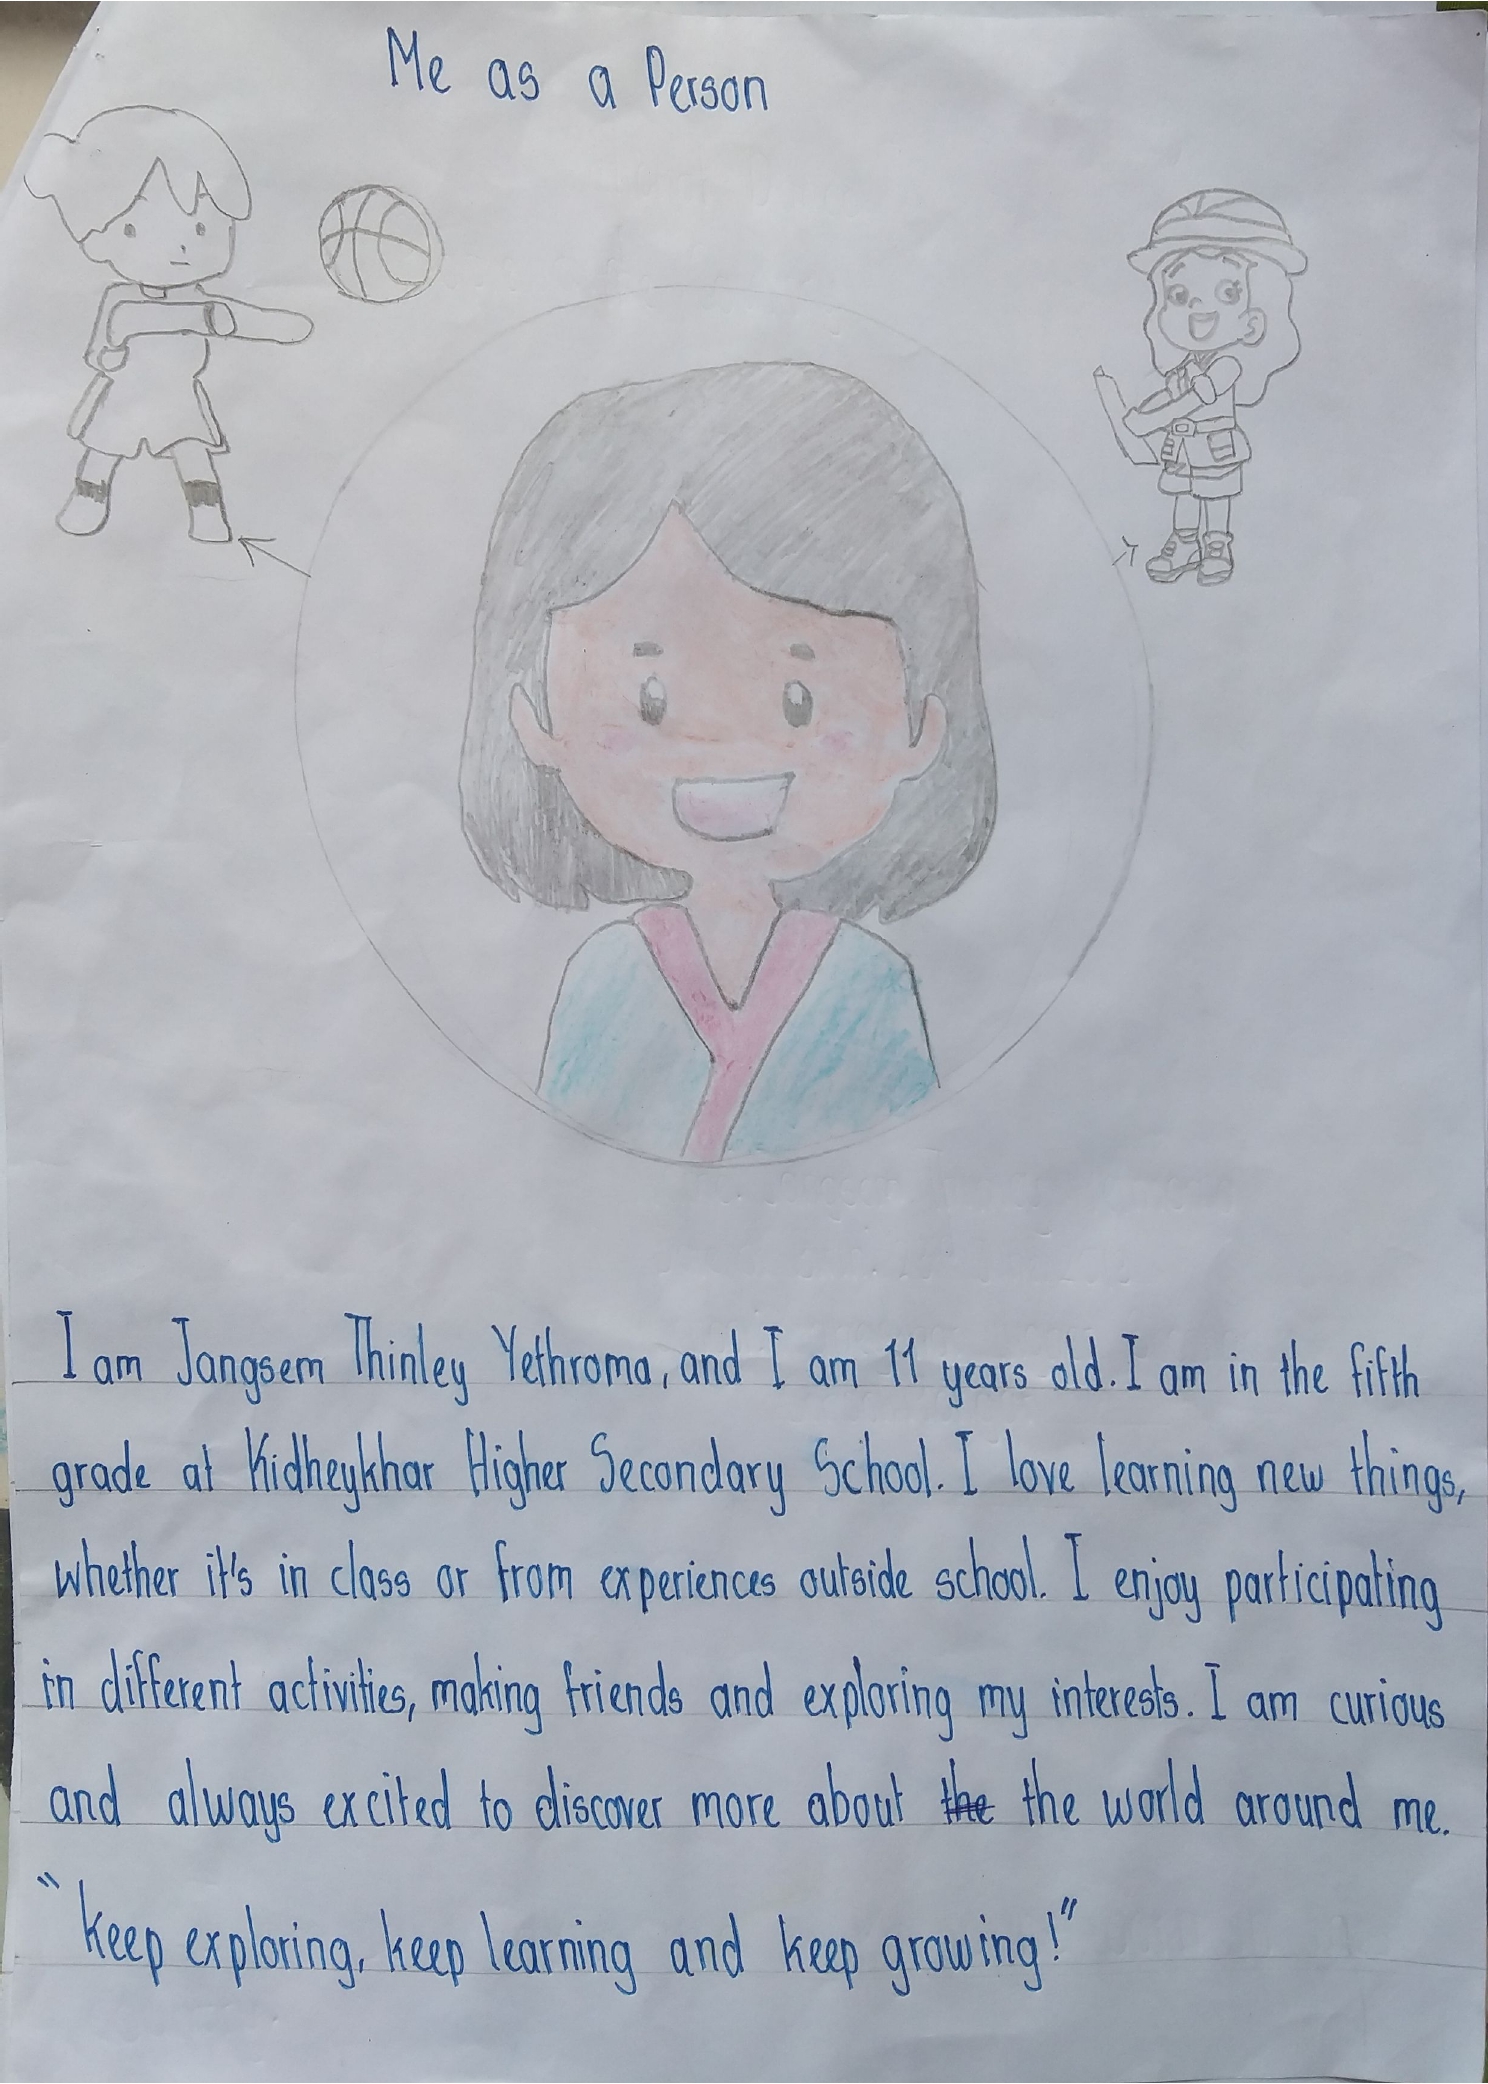 Me as a Person
I am Jangsem Thinley Yethroma, and I am 11 years old. I am in the fifth
grade at Kidheykhar Higher Secondary School. I love learning new things,
whether it's in class or from experiences outside school. I enjoy participating
in different activities, making friends and exploring my interests. I am curious
and always excited to discover more about the the world around me.
"keep exploring, keep learning and keep growing!"